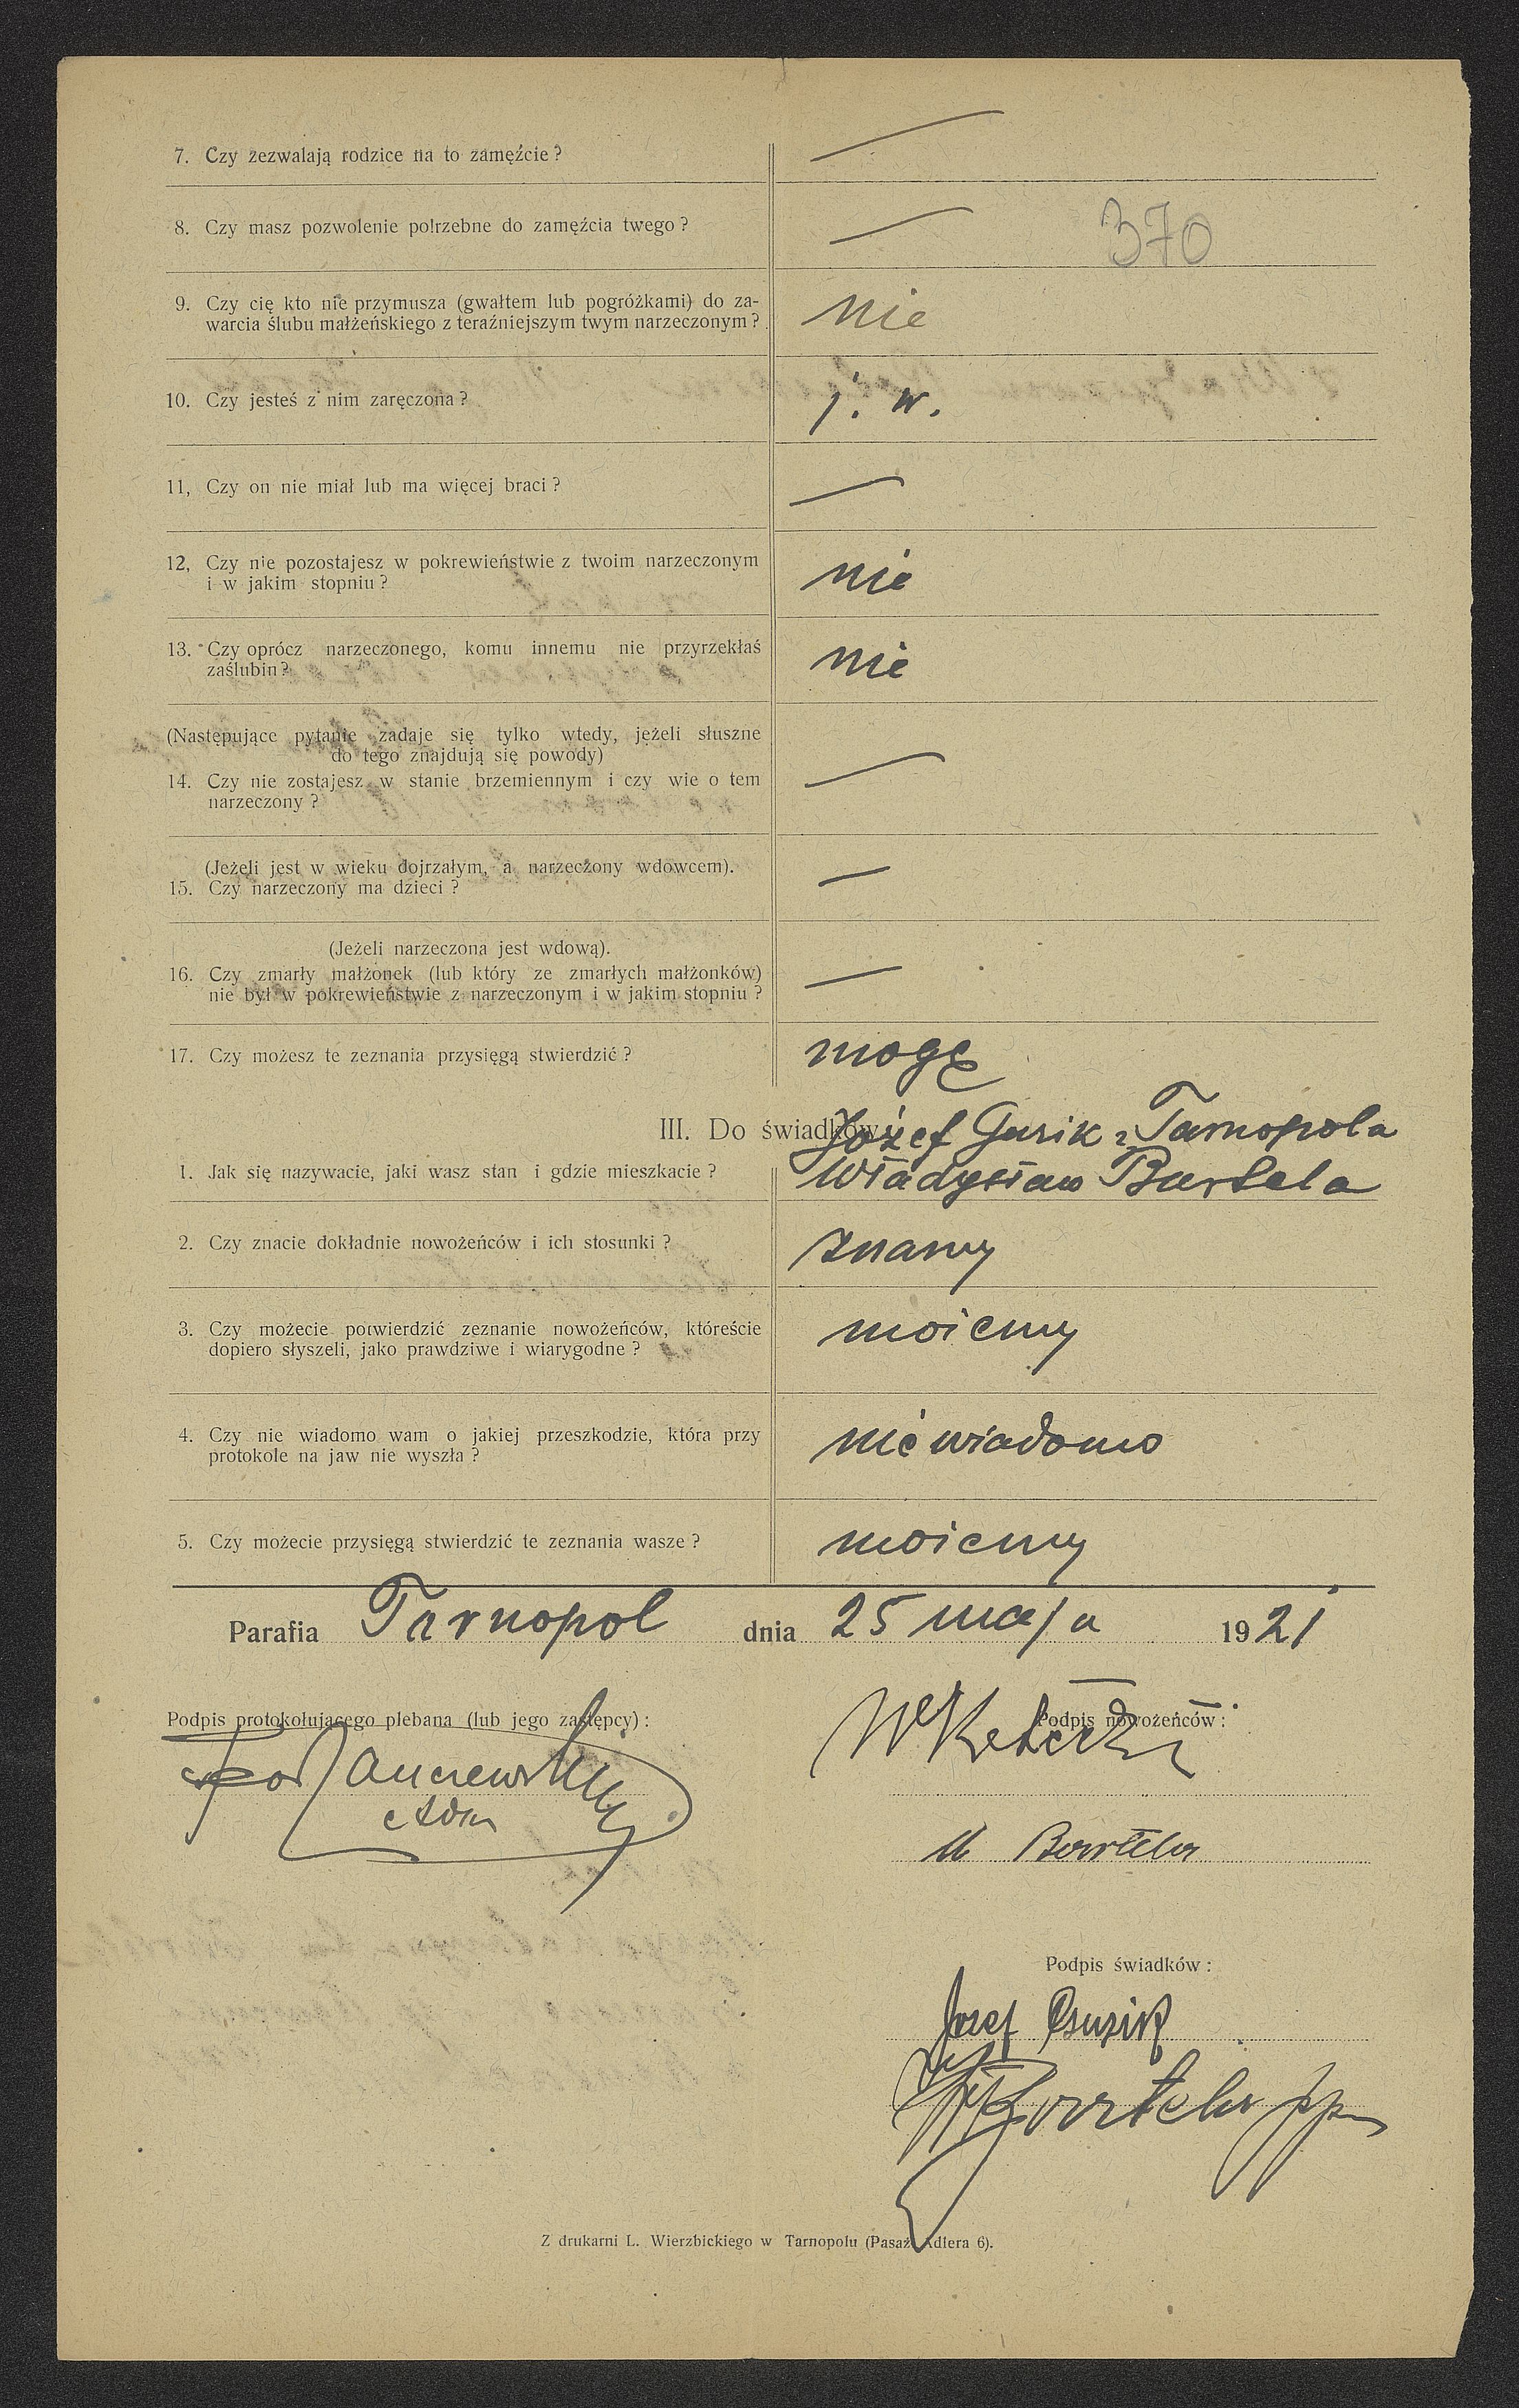 7. Czy zezwalają rodzice na to zamęźcie?
—
8. Czy masz pozwolenie potrzebne do zamęźcia twego?
—
370
9. Czy cię kto nie przymusza (gwałtem lub pogróżkami) do za-
warcia ślubu małżeńskiego z teraźniejszym twym narzeczonym?
nie
10. Czy jesteś z nim zaręczona?
j. w.
11, Czy on nie miał lub ma więcej braci?
—
12, Czy nie pozostajesz w pokrewieństwie z twoim narzeczonym
i w jakim stopniu?
nie
13. Czy oprócz narzeczonego, komu innemu nie przyrzekłaś
zaślubin?
nie
(Następujące pytanie zadaje się tylko wtedy, jeżeli słuszne
do tego znajdują się powody)
14. Czy nie zostajesz w stanie brzemiennym i czy wie o tem
narzeczony?
—
(Jeżeli jest w wieku dojrzałym, a narzeczony wdowcem).
15. Czy narzeczony ma dzieci?
—
(Jeżeli narzeczona jest wdową).
16. Czy zmarły małżonek (lub który ze zmarłych małżonków)
nie był w pokrewieństwie z narzeczonym i w jakim stopniu?
—
17. Czy możesz te zeznania przysięgą stwierdzić?
mogę
III. Do świadków:
1. Jak się nazywacie, jaki wasz stan i gdzie mieszkacie?
Józef Gusik z Tarnopola
Władysław Bartela
2. Czy znacie dokładnie nowożeńców i ich stosunki?
znamy
3. Czy możecie potwierdzić zeznanie nowożeńców, któreście
dopiero słyszeli, jako prawdziwe i wiarygodne?
możemy
4. Czy nie wiadomo wam o jakiej przeszkodzie, która przy
protokole na jaw nie wyszła?
nie wiadomo
5. Czy możecie przysięgą stwierdzić te zeznania wasze?
możemy
Parafia Tarnopol dnia 25 maja 1921
Podpis protokołującego plebana (lub jego zastępcy):
Podpis nowożeńców:
M Bartela
Podpis świadków:
Józef
Bartela
Z drukarni L. Wierzbickiego w Tarnopolu (Pasaż Adlera 6).